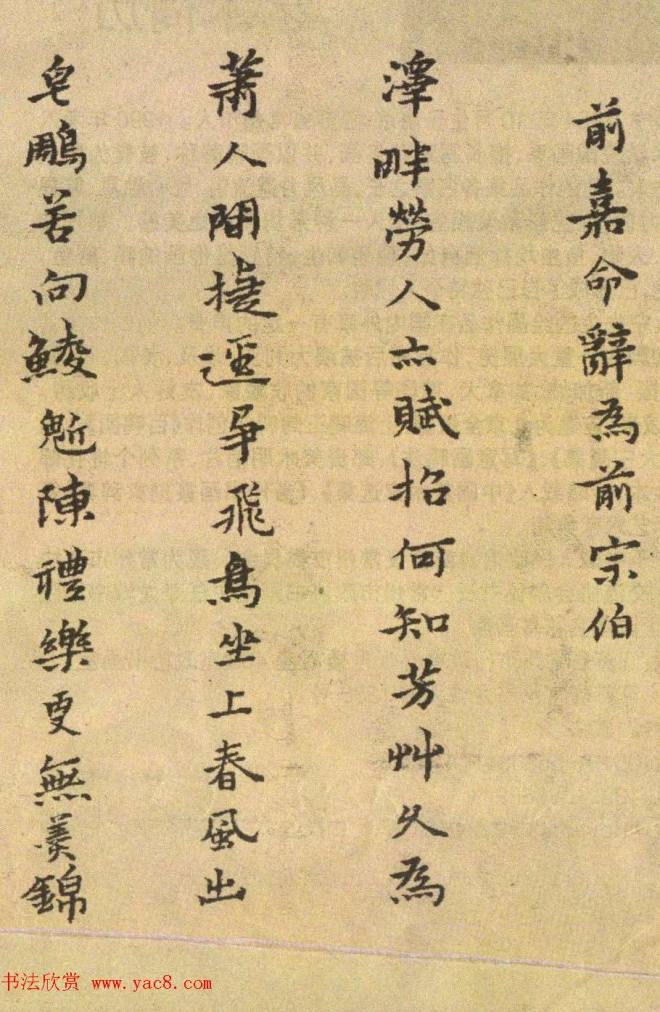 前嘉命辭為前宗伯
澤畔勞人亦賦招何知芳艸久為
蕭人間捷逕爭飛鳥坐上春風出
皂鵰若向鯪魡陳禮樂更無羨錦
书法欣赏 www.yac8.com